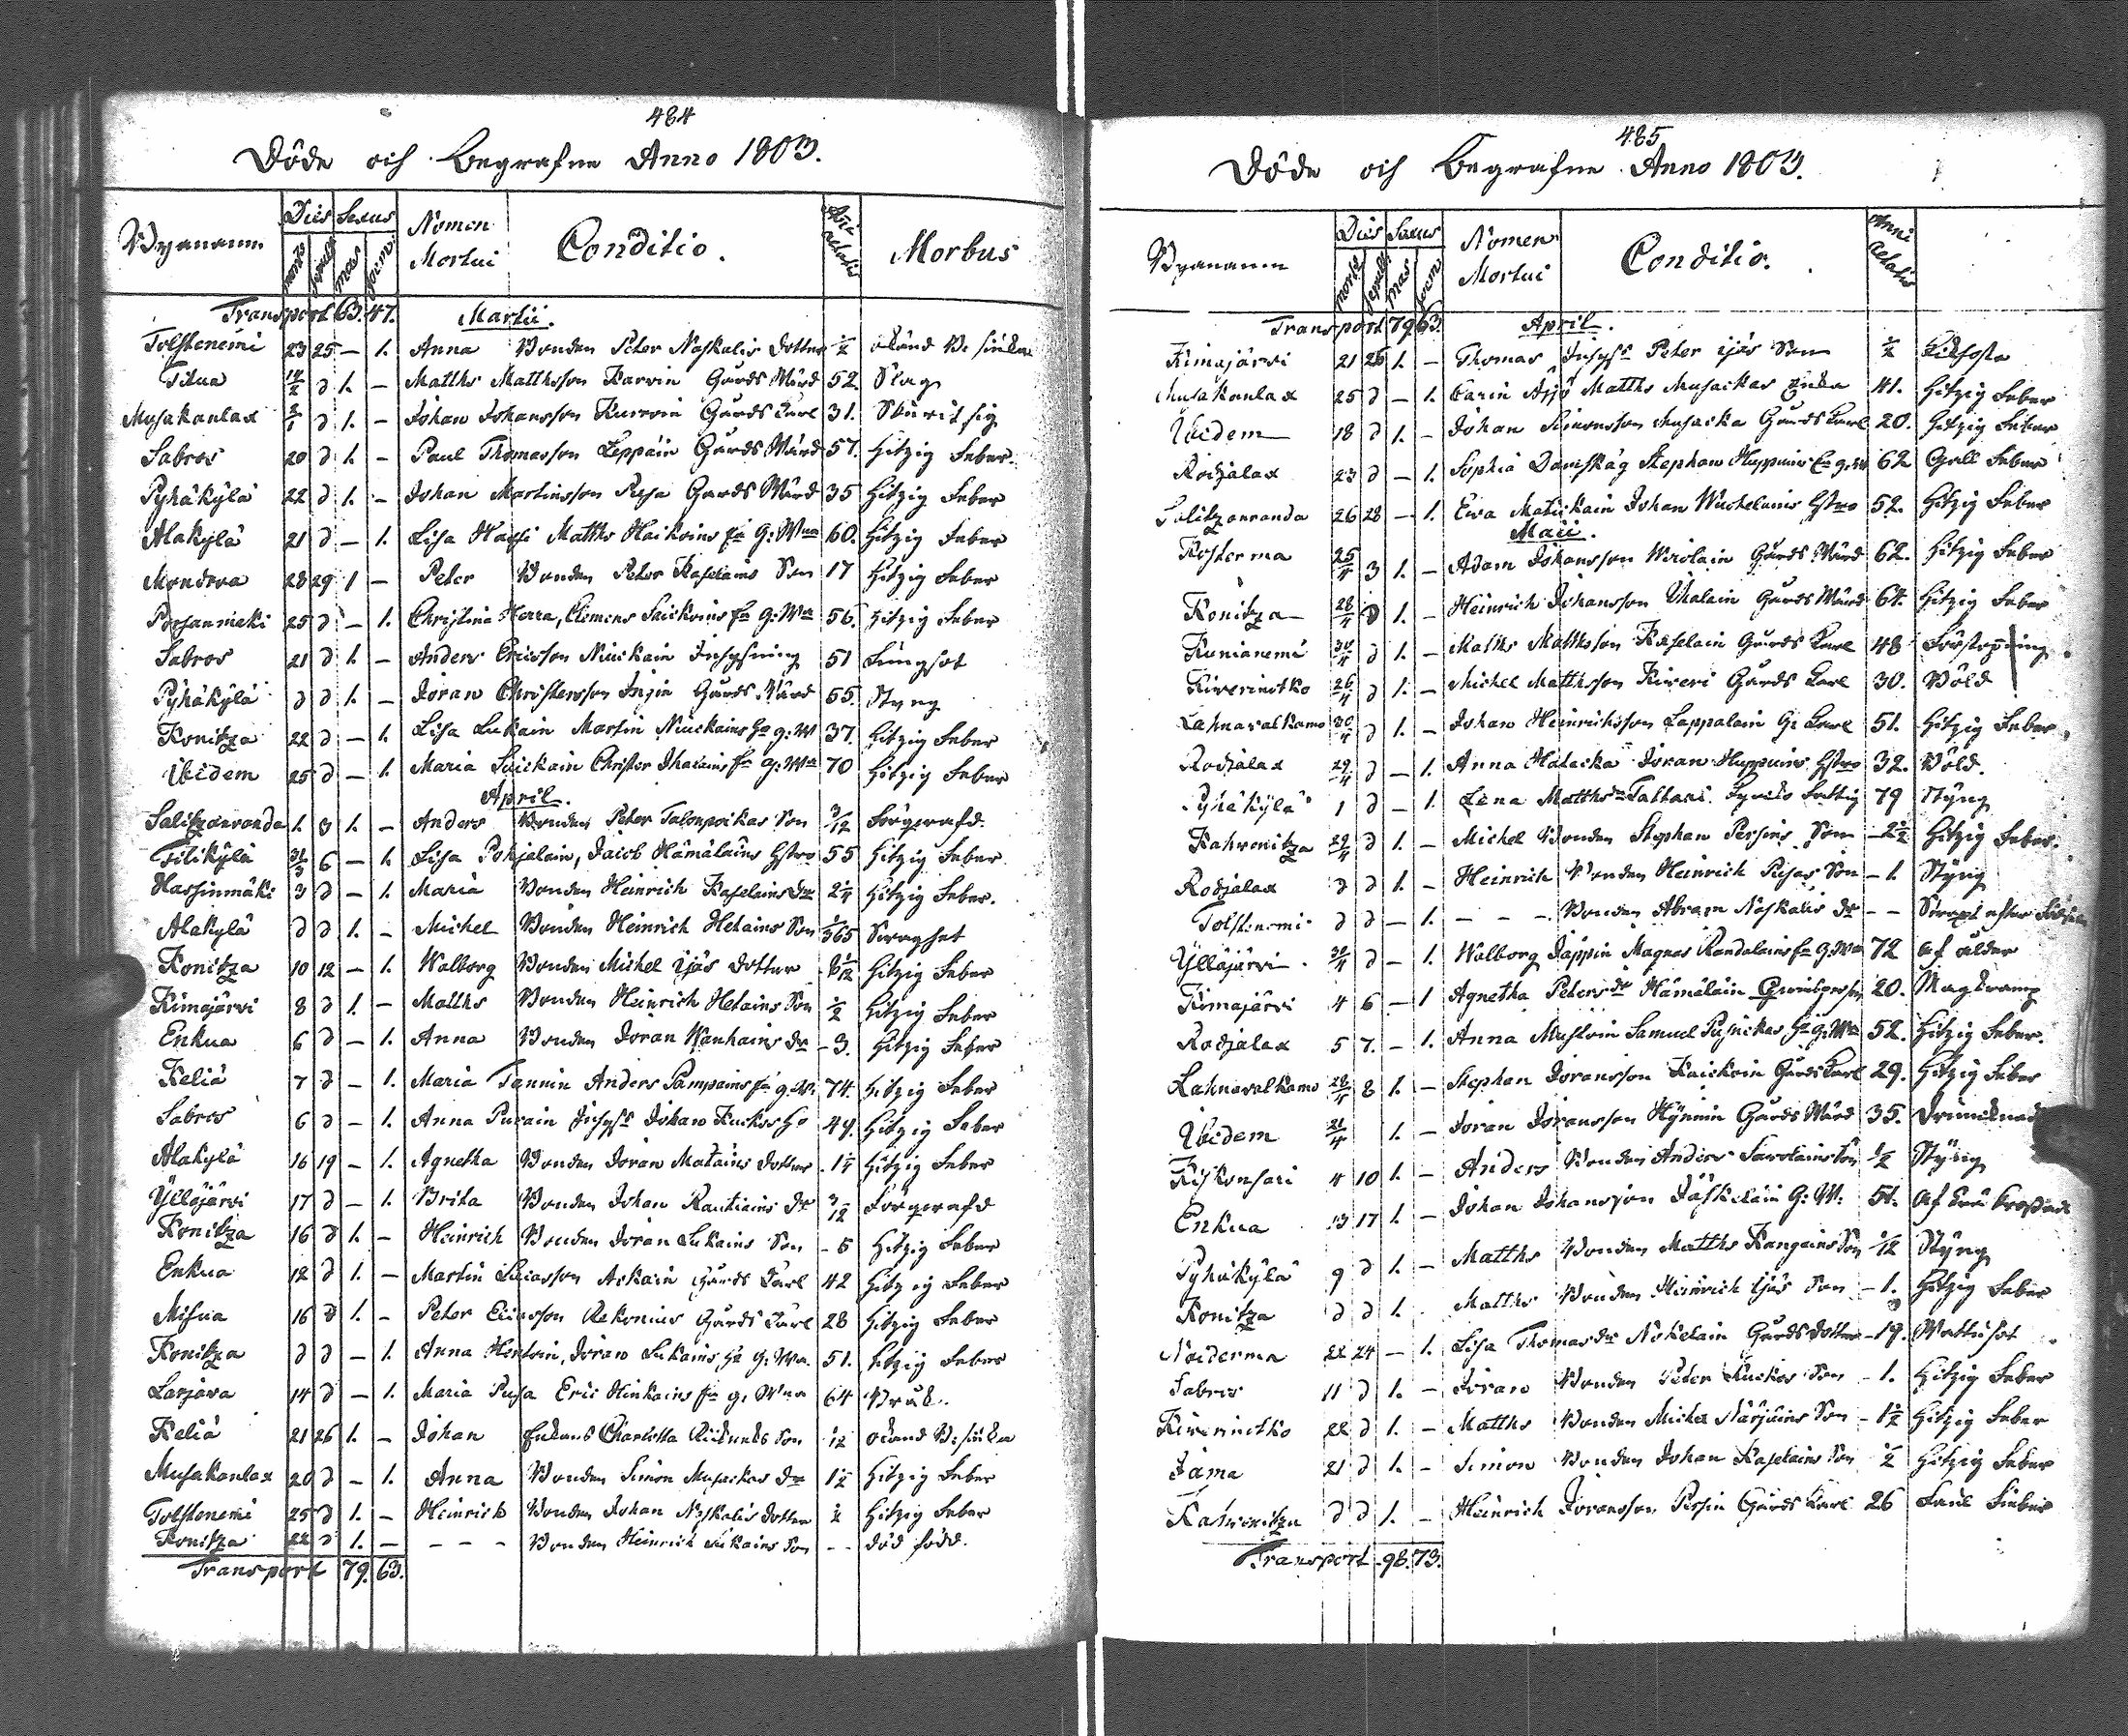 484
Döde och Begrafne Anno 1803.
Bynamn Dies Sexus Nomen Mortui Conditio. Morbus
mortis sepult mas foem
Transport 63. 47. Martii.
Tolstenemi 23 25 – 1. Anna Bonden Peter Naskalis Dotter ½ okänd
Titua d 1. – Matths Matthsson Karvin Gårds Wärd 52. Slag
Musakanlax d 1. – Johan Johansson Kurvin Gårds Karl 31.
Sabros 20 d 1. – Paul Thomasson Leppäin Gårds Wärd 57. Hitzig Feber.
Pyhäkylä 22 d 1. – Johan Martinsson Pusa Gårds Wärd 35 Hitzig Feber
Alakylä 21 d – 1. Lisa Matths Haikoins G: Wna 60. Hitzig Feber
Mondova 28 29 1 – Peter Bonden Peter Kaselains Son 17 Hitzig Feber
25 d – 1. Christina Herra, Clemens Saickoins G: Wa 56. Hitzig Feber
Sabros 21 d 1. – Anders Ericsson Niuckain Inhysning 51 Lungsot
Pyhäkylä d d 1. – Jöran Christersson Gårds Wärd 55. Styng
Konitza 22 d – 1. Lisa Lukain Martin Niuckains g: W 37. Hitzig Feber
Ibidem 25 d – 1. Maria Suickain Christer Ihalains g: Wa 70 Hitzig Feber
April.
Salitzenranda 1. 3 1. – Anders Bonden Peter Talonpoikas Son 3/12
Titikylä 31/3 6 – 1. Lisa Pohjalain, Jacob Hämäläins Hstro 55 Hitzig Feber
Hassinmäki 3 d – 1. Maria Bonden Heinrich Kaselains Dr 2¼ Hitzig Feber.
Alakylä d d 1. – Michel Bonden Heinrich Hetains Son Swaghet
Konitza 10 12 – 1. Walborg Bonden Michel Ijäs Dotter Hitzig Feber
Kimajärvi 8 d 1. – Matths Bonden Heinrich Hetains Son ½ Hitzig Feber
Enkua 6 d – 1. Anna Bonden Jöran Wanhains Dr – 3. Hitzig Feber
Keliä 7 d – 1. Maria Tannin Anders Pampains g: W: 74. Hitzig Feber
Sabros 6 d – 1. Anna Purain Johan Kuckos 49. Hitzig Feber
Alakylä 16 19 – 1. Agnetha Bonden Jöran Matains Dotter – 1¼ Hitzig Feber
Ylläjärvi 17 d – 1. Brita Bonden Johan Rautiains Dr 3/12
Konitza 16 d 1. – Heinrich Bonden Jöran Lukains Son – 5 Hitzig Feber
Enkua 12 d 1. – Martin Lucasson Askain Gårds Karl 42 Hitzig Feber
Misua 16 d 1. – Peter Ericsson Rekonius Gårds Karl 28 Hitzig Feber
Konitza d d – 1. Anna Jöran Lukains, g: Wa. 51. Hitzig Feber
Larjava 14 d – 1. Maria Pusa Eric Hinkains g: Wna 64 Bråk.
Keliä 21 26 1. – Johan Enkans Charlotta Son okänd
Musakanlax 20 d – 1. Anna Bonden Simon Musackas Dr Hitzig Feber
Tolstenemi 25 d 1. – Heinrich Bonden Johan Naskalis Dotter Hitzig Feber
Konitza 22 d 1. – – – – Bonden Heinrich Lukains Son – – död född.
Transport 79. 63.
485
Döde och Begrafne Anno 1803.
Bynamn Dies Sexus Nomen Mortui Conditio. Anni Aetatis
mortis sepult mas foem
Transport 79 63. April.
Kimajärvi 21 26 1. – Thomas Inhyss Peter Ijäs Son ½ Kikhosta
Musakanlax 25 d – 1. Carin Matths Musackas Enka 41. Hitzig Feber
Ibidem 18 d 1. – Johan Simonsson Musacka Gårds Karl 20. Hitzig Feber
Rodjalax 23 d – 1. Sophia Stephan Huppuins 62 Gall Feber
Salitzenranda 26 28 – 1. Ewa Matickain Johan Hstro 52. Hitzig Feber
Maii.
Kosterma 25/4 3 1. – Adam Johansson Wirolain Gårds Wärd 62. Hitzig Feber
Konitza 28/4 d 1. – Heinrich Johansson Ihalain Gårds Wärd 64. Hitzig Feber
Kunianemi 30/4 d 1. – Matths Matthsson Kaselain Gårds Karl 48 Förstoppning
Kiverinotko 26/4 d 1. – Michel Matthsson Kiveri Gårds Karl 30. Wåld
Lahnavalkamo 30/4 d 1. – Johan Heinrichsson Lappalain G: Karl 51. Hitzig Feber
Rodjalax 29/4 d – 1. Anna Halacka Jöran Huppuins Hstro 32. Wåld.
Pyhäkylä 1 d – 1. Lena Matthsdr Tattari. Fattig 79 Styng
Kahvenitza 29/4 d 1. – Michel Bonden Stephan Persins Son – 2½ Hitzig Feber.
Rodjalax d d 1. – Heinrich Bonden Heinrich Pusas Son – 1. Styng
Tolstenemi d d – 1. – – – Bonden Abram Naskalis Dr – – Straxt efter Födseln
Ylläjärvi 30/4 d – 1. Walborg Jäppin Magnus Randalains G: Wa 72 af ålder
Kimajärvi 4 6 – 1 Agnetha Petersdr Hämäläin 20. Magkramp
Rodjalax 5 7. – 1. Anna Samuel Pusnickas g: Wa 52. Hitzig Feber.
Lahnavalkamo 28/4 8 1. – Stephan Jöransson Kaickoin Gårds Karl 29. Hitzig Feber
Ibidem 21/4 1. – Jöran Jöransson Hyninin Gårds Wärd 35. Drunknad
Kiskonsari 4 10 1. – Anders Bonden Anders Savolains Son ½ Styng
Enkua 13 17 1. – Johan Johansson Jäskeläin G: W: 51. af
Pyhäkylä 9 d 1. – Matths Bonden Matths Kangains Son Styng
Konitza d d 1. Matths Bonden Heinrich Ijäs Son – 1. Hitzig Feber
Noiderma 22 24 – 1. Lisa Thomasdr Nokelain Gårds Dotter – 19. Wattusot
Sabros 11 d 1. – Jöran Bonden Peter Kuckos Son – 1. Hitzig Feber
Kiverinotko 22 d 1. – Matths Bonden Michel Närjäins Son – 1½ Hitzig Feber
Jama 21 d 1. – Simon Bonden Johan Kaselains Son ½ Hitzig Feber
Kahvenitza d d 1. – Heinrich Jöransson Persin Gårds Karl 26
Transport 98. 73.